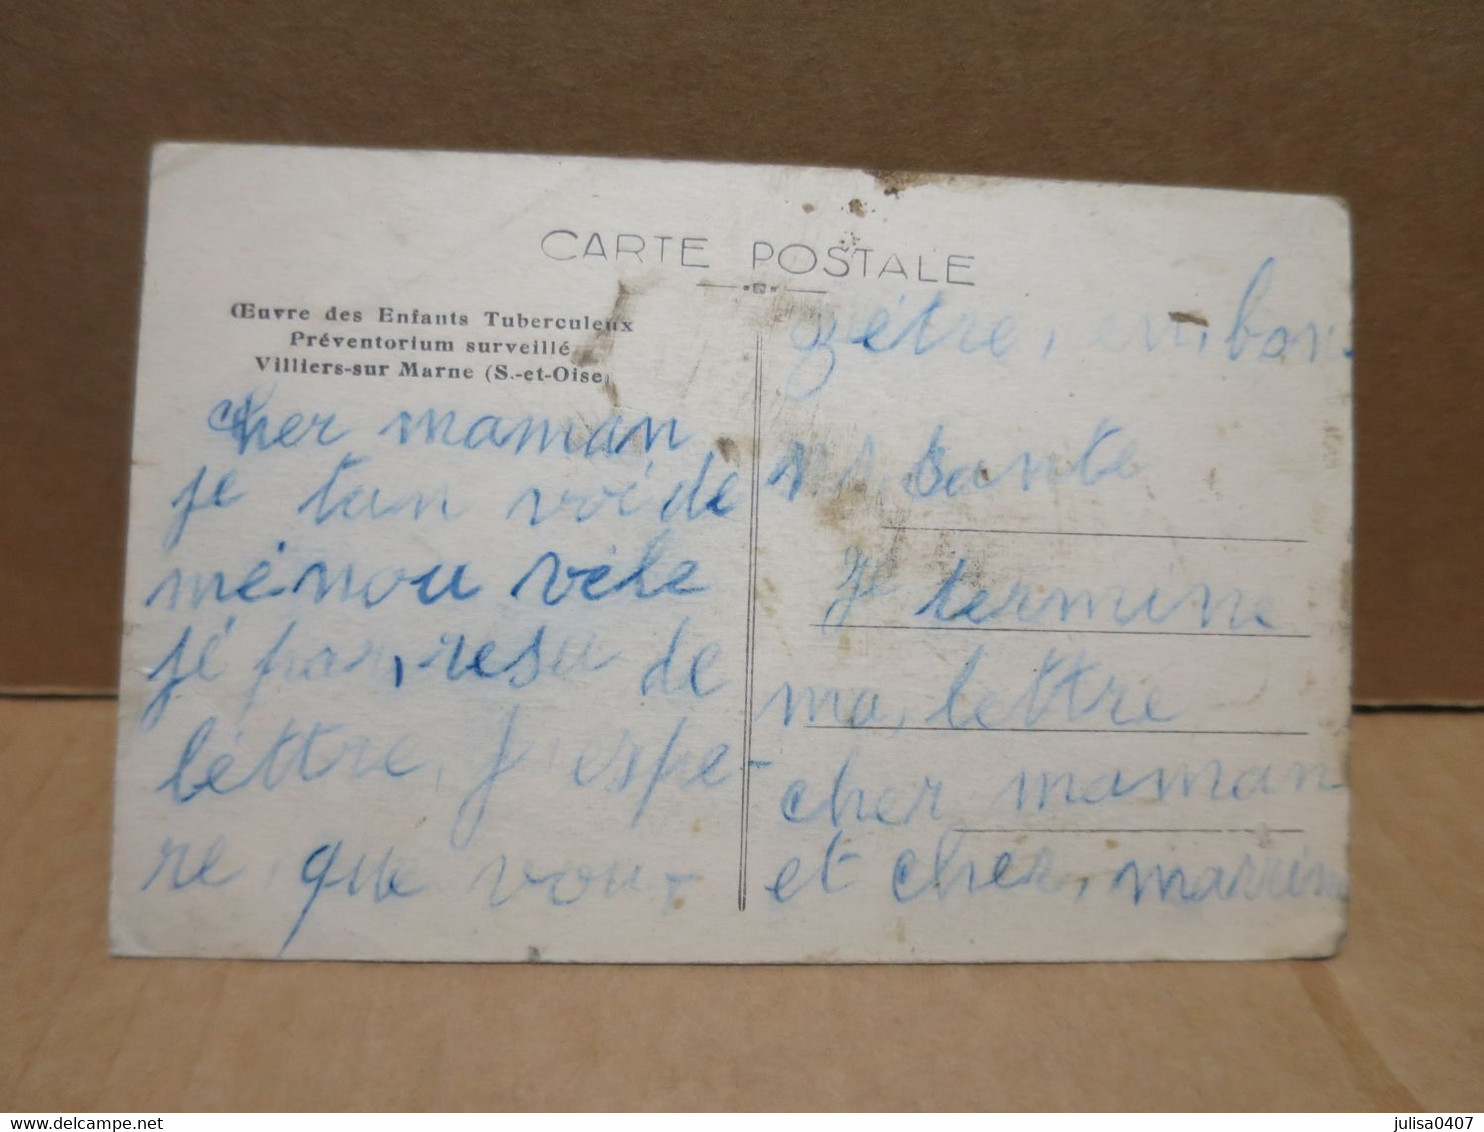 CARTE POSTALE
Œuvre des Enfants Tuberculeux
Préventorium surveillé
Villiers-sur Marne (S.-et-Oise)
cher maman
je tan voi de
mé nou vèle
jé par, resu de
léttre, j'espe-
re que vou-
zétre, en, bon
n, sante
Je termine
ma, lettre
cher maman
et cher,
julisa0407